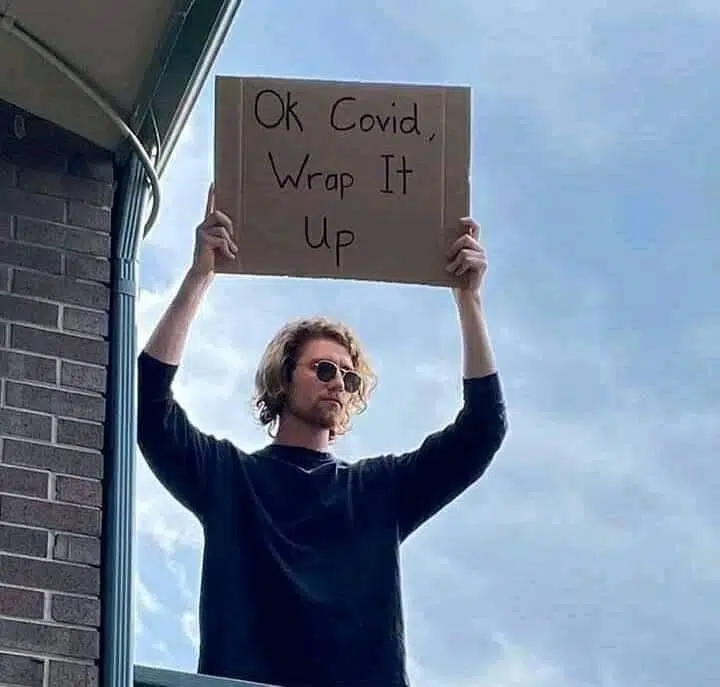 Ok Covid,
Wrap It
Up